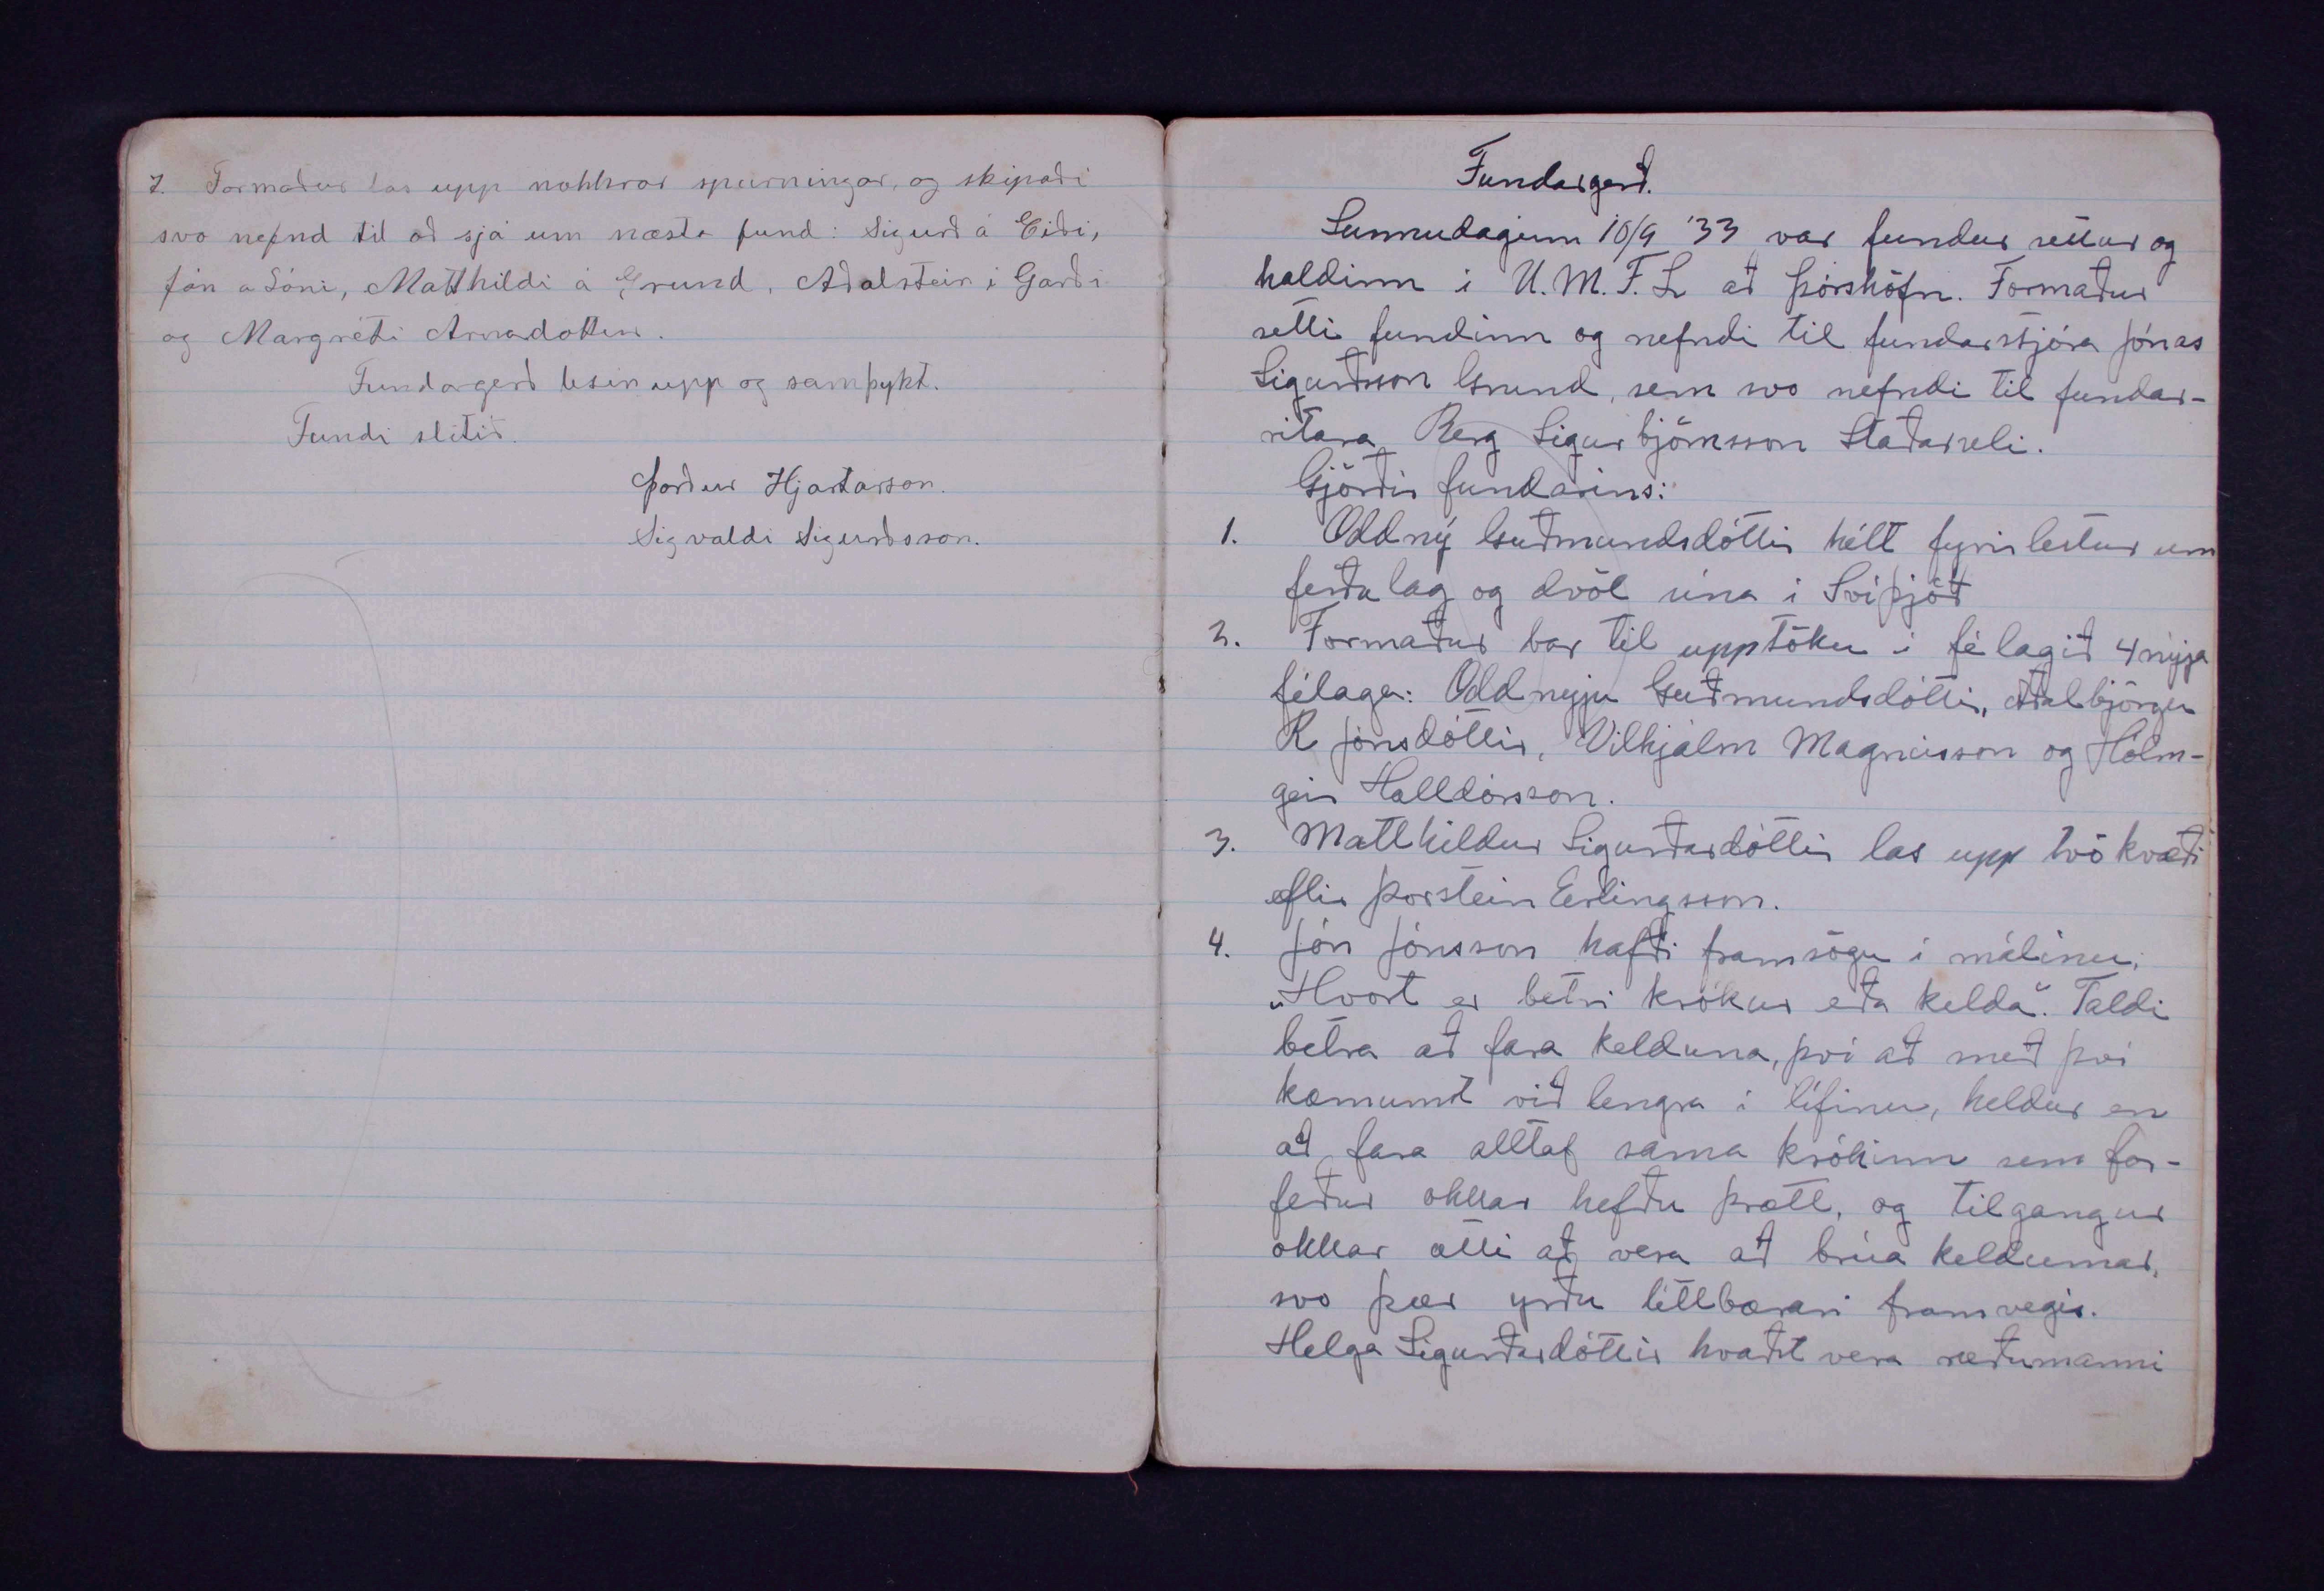 7. Formaður las upp nokkrar spurningar, og skipaði
svo nefnd til að sjá um næsta fund: Sigurð á Eiði,
Jón á Lóni, Matthildi á Grund, Aðalstein í Garði
og Margréti Arnadóttur.
Fundargerð lesin upp og samþykt.
Fundi slitið.
Þórður Hjartarson.
Sigvaldi Sigurðsson.
Fundargerð.
Sunnudaginn 10/9 '33 var fundur settur og
haldinn í U.M.F.L að Þórshöfn. Formaður
setti fundinn og nefndi til fundarstjóra Jónas
Sigurðsson Grund, sem svo nefndi til fundar-
ritara Berg Sigurbjörnsson Staðarseli.
Gjörðir fundarins:
1. Oddný Guðmundsdóttir hélt fyrirlestur um
ferðalag og dvöl sína í Svíþjóð
2. Formaður bar til upptöku í félagið 4 nýja
félaga: Oddnýju Guðmundsdóttir, Aðalbjörgu
R Jónsdóttir, Vilhjálm Magnússon og Hólm-
geir Halldórsson.
3. Matthildur Sigurðardóttir las upp tvö kvæði
eftir Þorstein Erlingsson.
4. Jón Jónsson hafði framsögu í málinu:
„Hvort er betri krókur eða kelda“. Taldi
betra að fara kelduna, því að með því
kæmumt við lengra í lífinu, heldur en
að fara alltaf sama krókinn sem for-
feður okkar hefðu þrætt, og tilgangur
okkar ætti að vera að brúa keldurnar,
svo þær yrðu léttbærari framvegis.
Helga Sigurðardóttir kvaðst vera ræðumanni